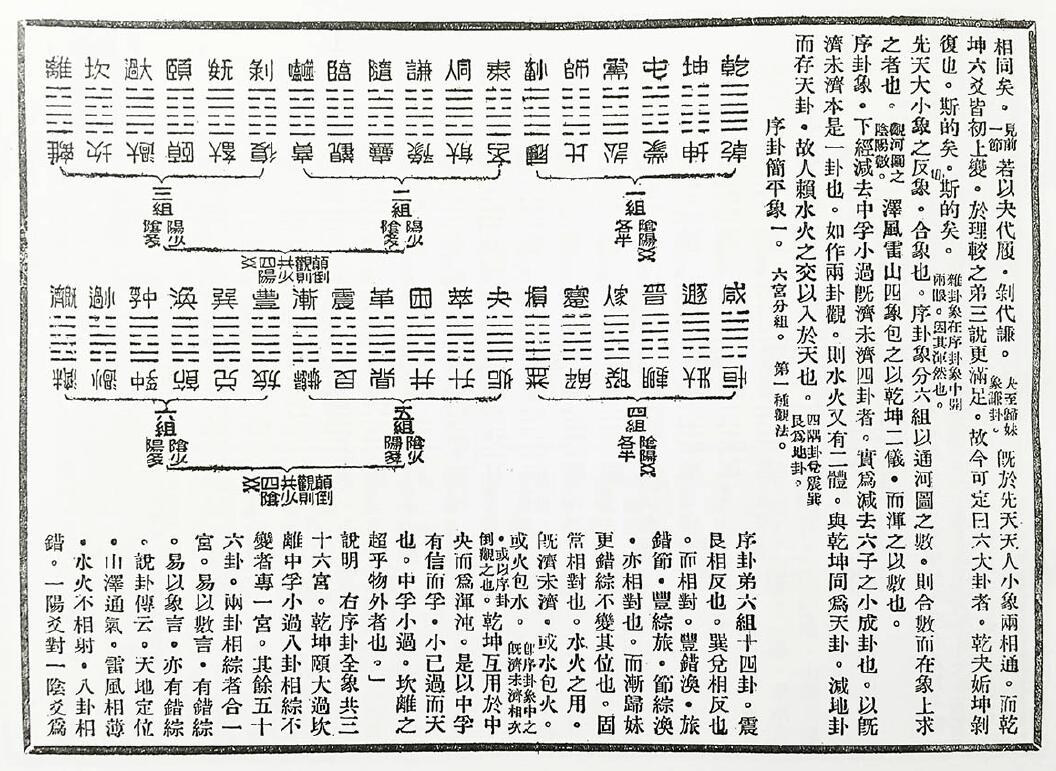 相同矣。見前一節若以夬代履。剝代謙。夬至歸妹象謙卦。既於先天天人小象兩相通。而乾
坤六爻皆初上變。於理較之第三說更滿足。故今可定曰六大卦者。乾夬姤坤剝
復也。斯的矣。斯的矣。雜卦象在序卦象中開兩眼。因其渾然也。
先天大小象之反象。合象也。序卦象分六組以通河圖之數。則合數而在象上求
之者也。觀河圖之陰陽數。澤風雷山四象包之以乾坤二儀。而渾之以數也。
序卦象。下經減去中孚小過既濟未濟四卦者。實為減去六子之小成卦也。以既
濟未濟本是一卦也。如作兩卦觀。則水火又有二體。與乾坤同為天卦。減地卦
而存天卦。故人賴水火之交以入於天也。四隅卦兌震巽艮為地卦。
序卦簡平象一。六宮分組。第一種觀法。
乾 坤 屯 需 師 小畜 泰 同人 謙 隨 臨 噬嗑 剝 无妄 頤 大過 坎 離
乾 坤 蒙 訟 比 履 否 大有 豫 蠱 觀 賁 復 大畜 頤 大過 坎 離
一組 陰陽爻各半
二組 陽少陰多
三組 陽少陰多
顛倒觀則共少四陽爻
咸 遯 晉 家人 蹇 損 夬 萃 困 革 震 漸 豐 巽 渙 中孚 小過 既濟
恒 大壯 明夷 睽 解 益 姤 升 井 鼎 艮 歸妹 旅 兌 節 中孚 小過 未濟
四組 陰陽爻各半
五組 陰少陽多
六組 陰少陽多
顛倒觀則共少四陰爻
序卦第六組十四卦。震
艮相反也。巽兌相反也
。而相對。豐錯渙。旅
錯節。豐綜旅。節綜渙
。亦相對也。而漸歸妹
更錯綜不變其位也。固
當相對也。水火之用。
既濟未濟。或水包火。
或火包水。既濟未濟相次即序卦象中之
。或以序卦倒觀之也。乾坤互用於中
央而為渾沌。是以中孚
有信而孚。小已過而天
也。中孚小過。坎離之
超乎物外者也。」
說明 右序卦全象共三
十六宮。乾坤頤大過坎
離中孚小過八卦相綜不
變者專一宮。其餘五十
六卦。兩卦相綜者合一
宮。易以數言。有錯綜
。易以象言。亦有錯綜
。說卦傳云。天地定位
。山澤通氣。雷風相薄
。水火不相射。八卦相
錯。一陽爻對一陰爻為